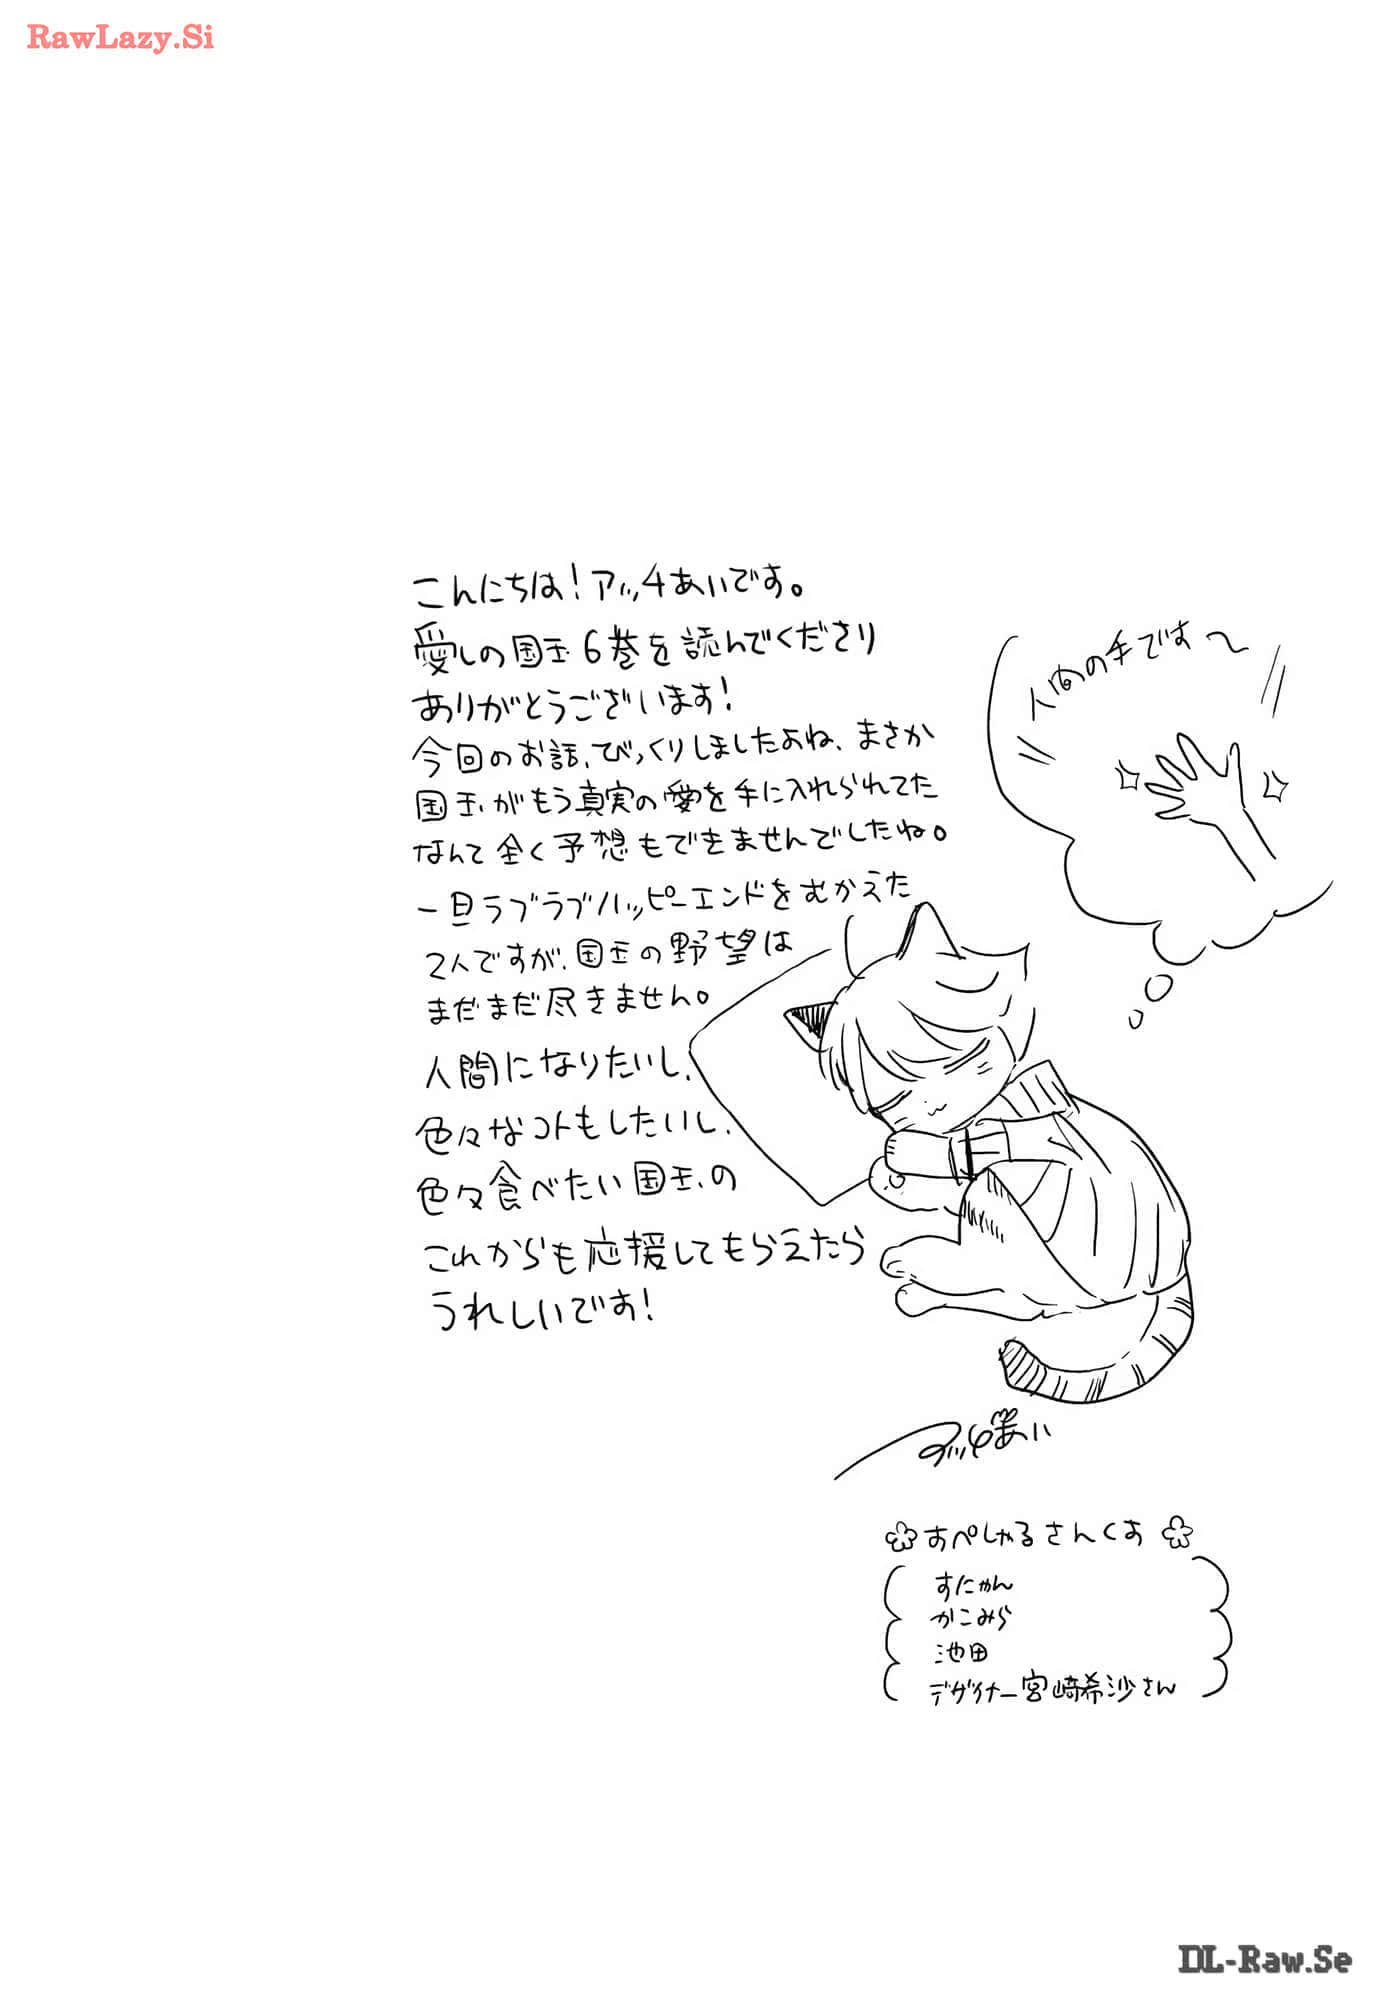 RawLazy.Si
こんにちは！アッチあいです。
愛しの国玉6巻を読んでくださり
ありがとうございます！
今回のお話、びっくりしましたよね、まさか
国玉がもう真実の愛を手に入れられてた
なんて全く予想もできませんでしたね。
一旦ラブラブハッピーエンドをむかえた
2人ですが、国玉の野望は
まだまだ尽きません。
人間になりたいし、
色々なコトもしたいし、
色々食べたい国玉の
これからも応援してもらえたら
うれしいです！
人間の手です〜
アッチあい
すぺしゃるさんくす
すにゃん
かこみら
池田
デザイナー宮崎希沙さん
DL-Raw.Se